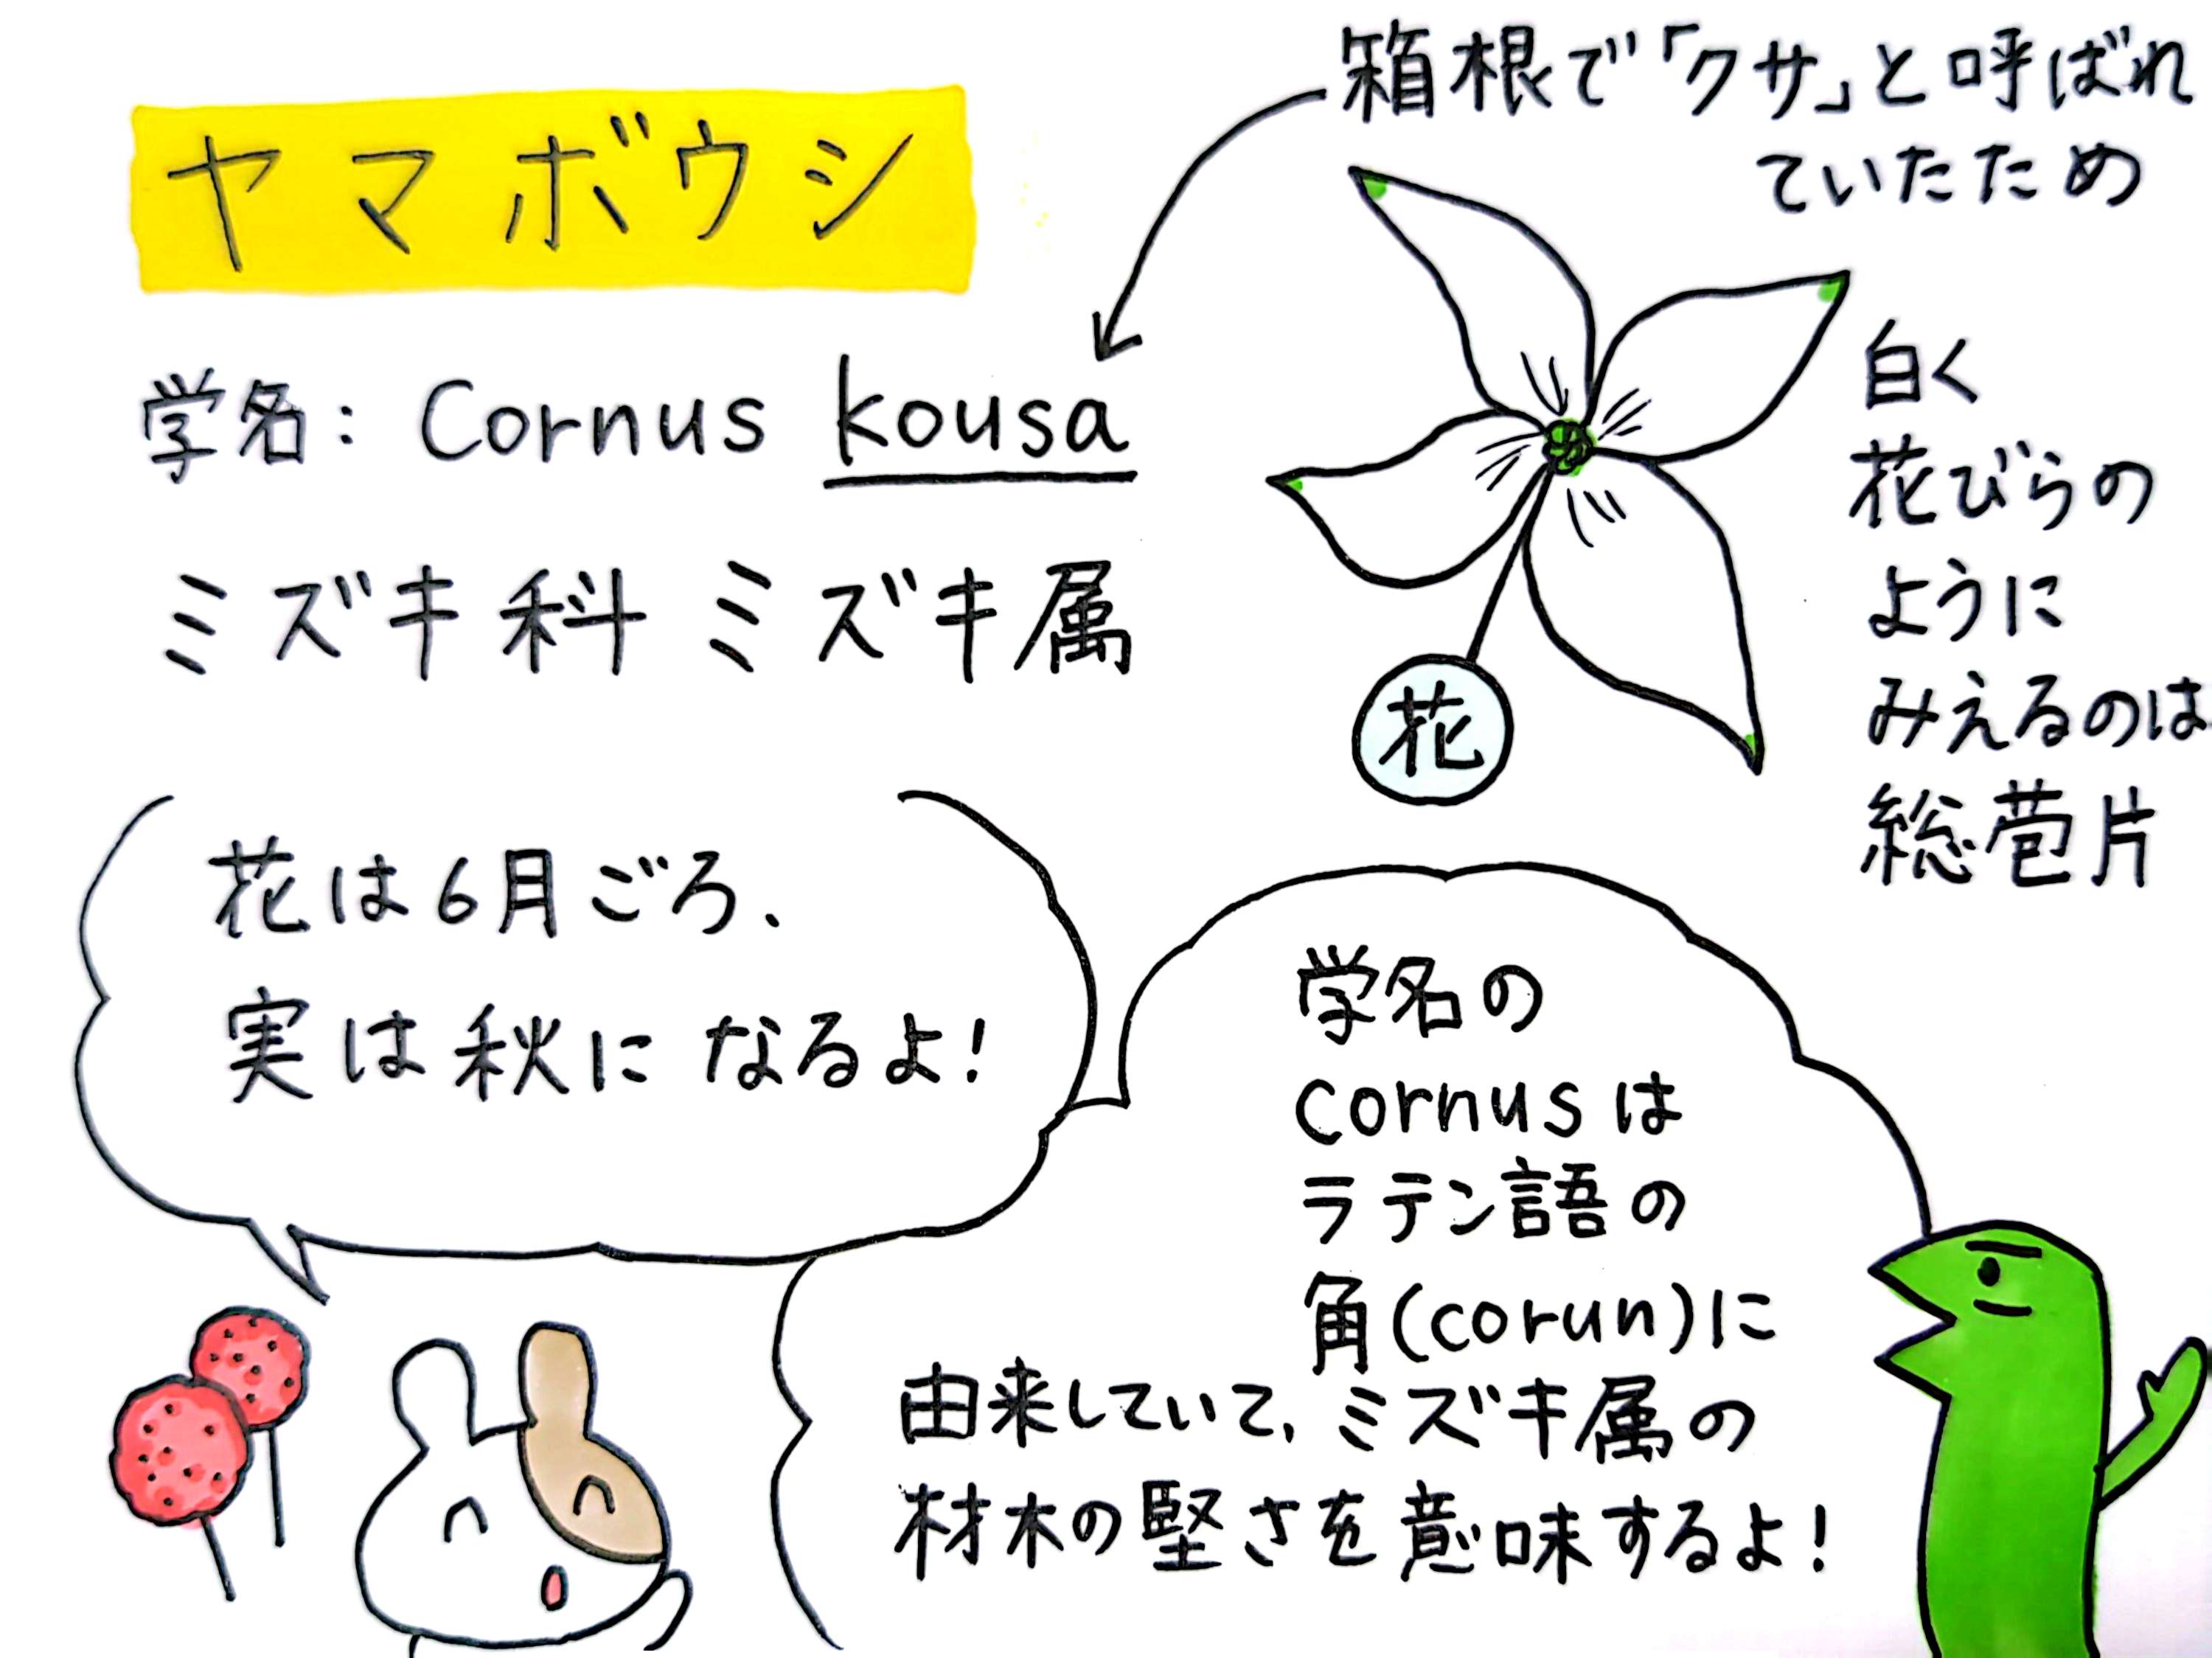 ヤマボウシ
箱根で「クサ」と呼ばれ
ていたため
学名: Cornus kousa
ミズキ科 ミズキ属
白く
花びらの
ように
みえるのは
総苞片
花
花は6月ごろ、
実は秋になるよ!
学名の
cornusは
ラテン語の
角(corun)に
由来していて、ミズキ属の
材木の堅さを意味するよ!